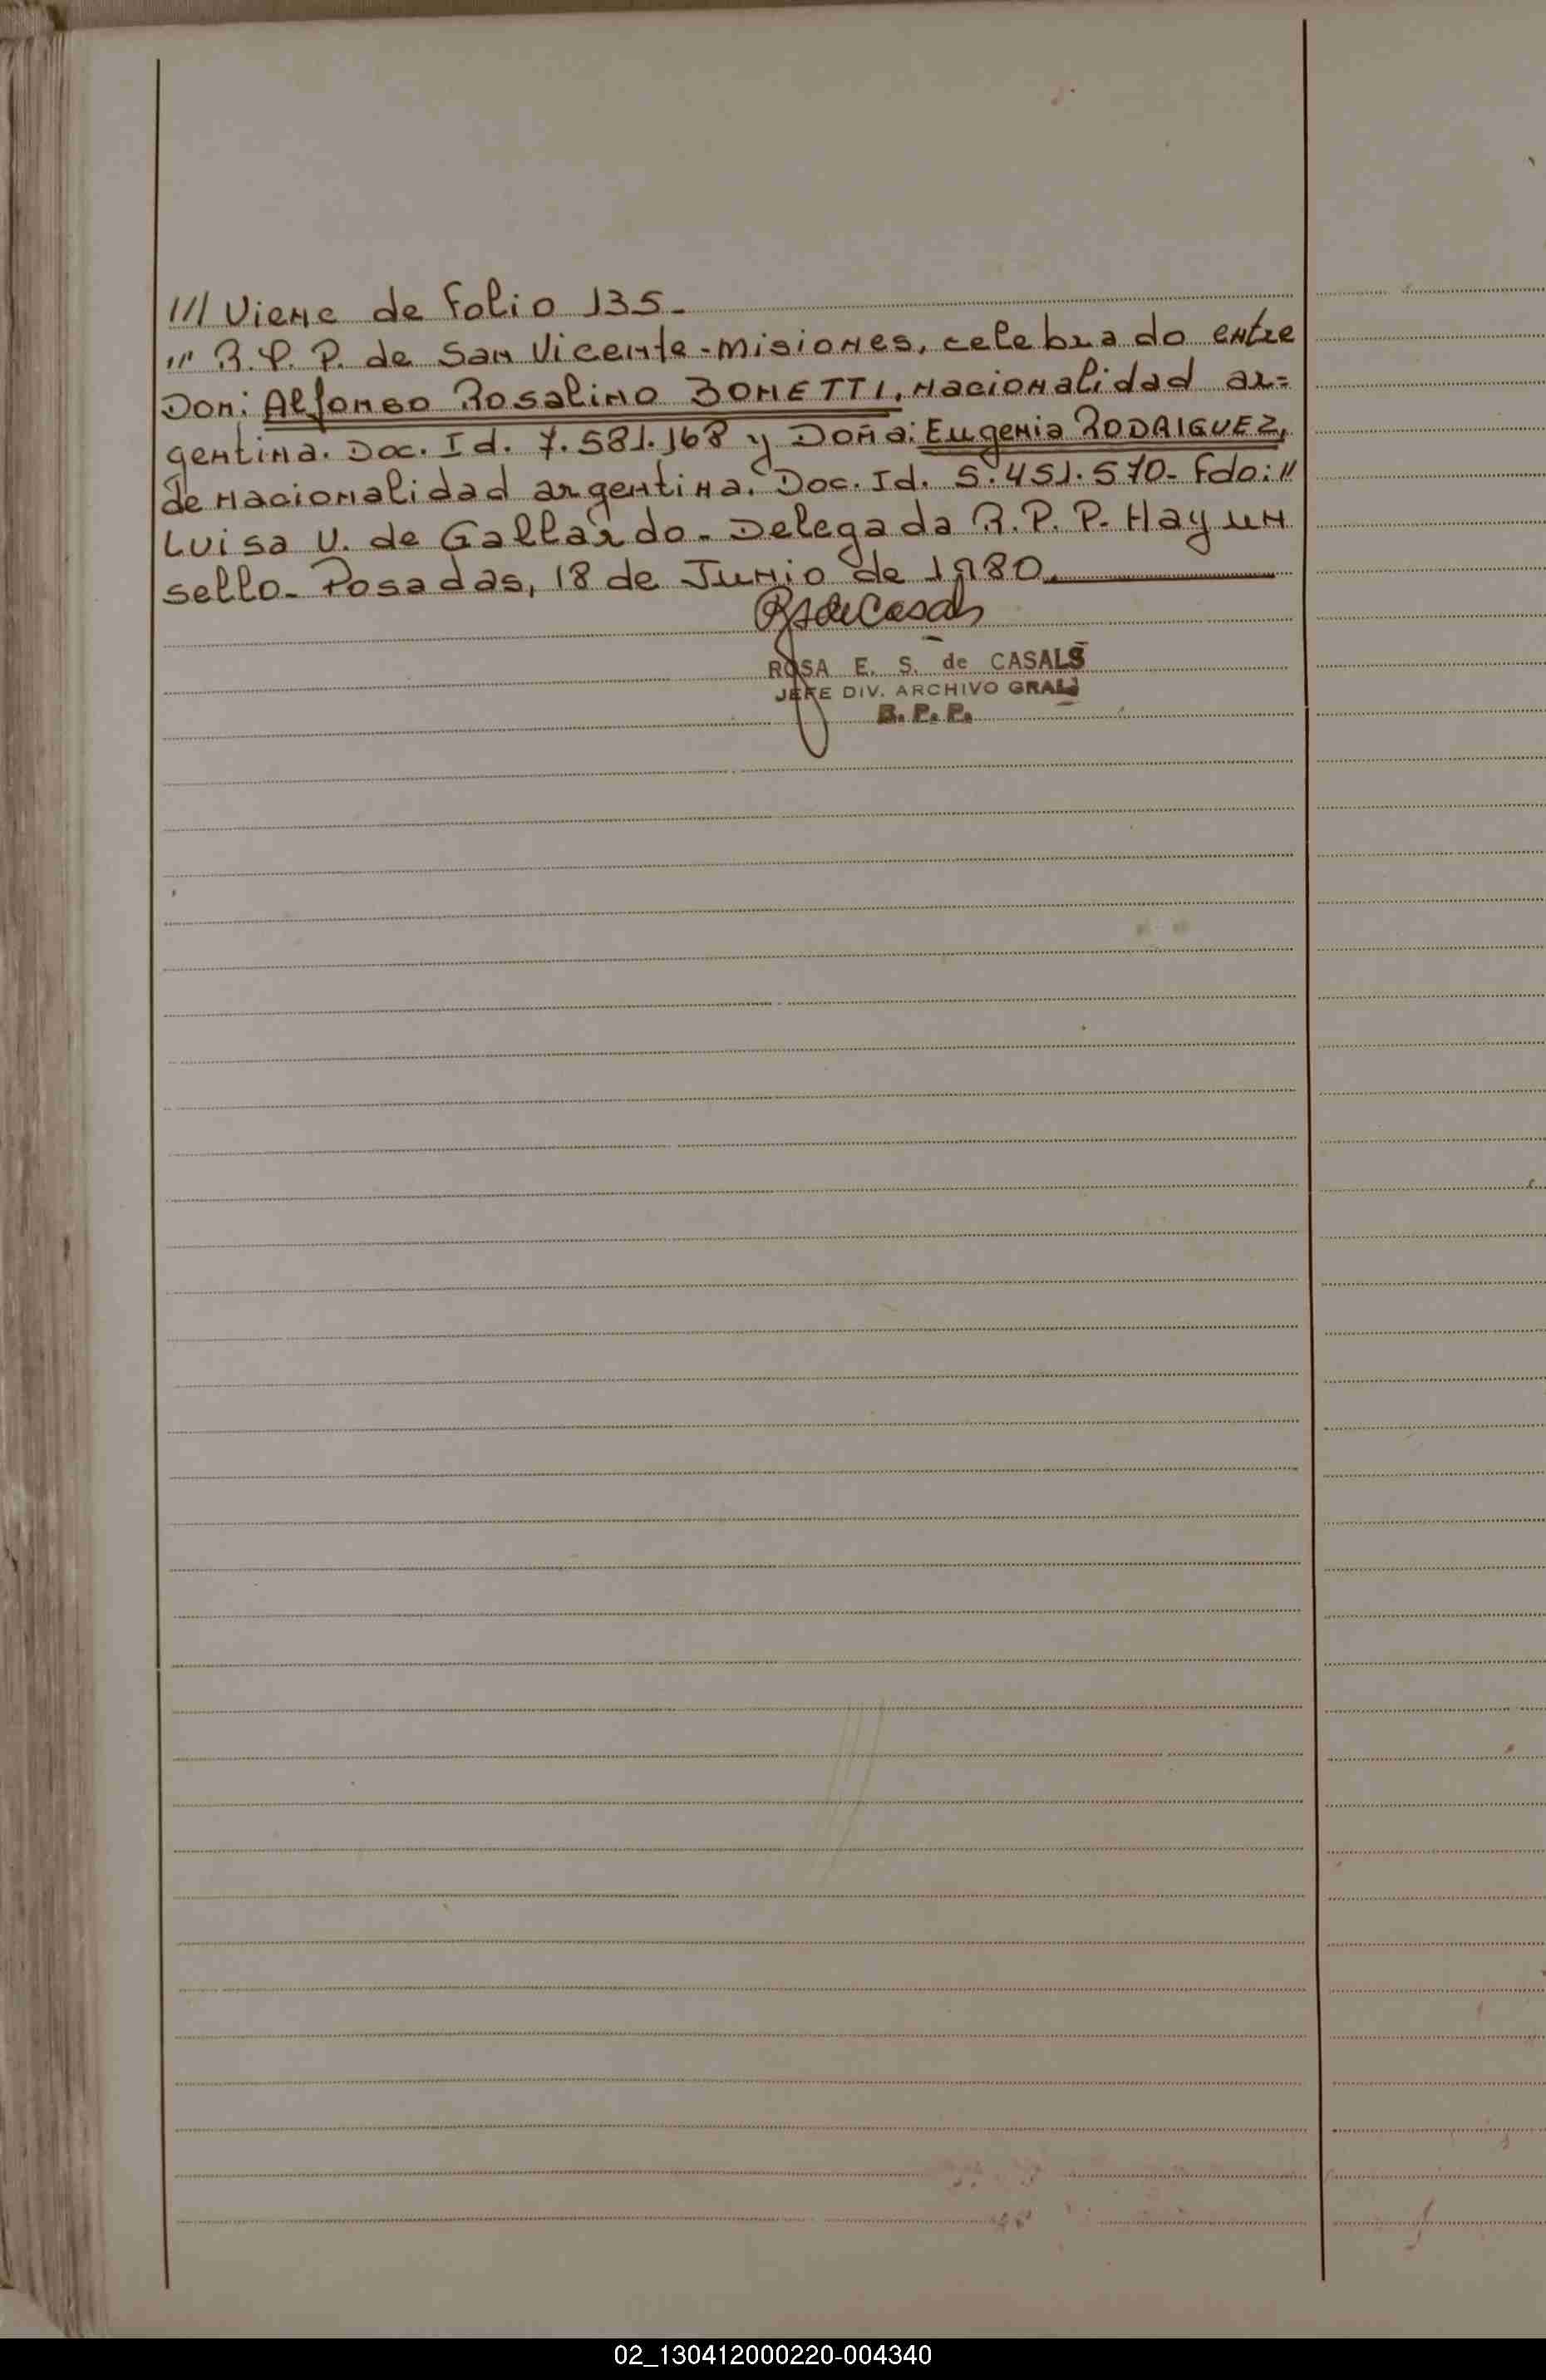 /// Viene de Folio 135-
''' R.P.P. de San Vicente-Misiones, celebrado entre
Don: Alfonso Rosalino BONETTI, nacionalidad ar=
gentina. Doc. Id. 7.581.168 y Doña: Eugenia RODRIGUEZ,
de nacionalidad argentina. Doc. Id. 5.451.570- Fdo: //
Luisa V. de Gallardo- Delegada R.P.P. Hay un
sello- Posadas, 18 de Junio de 1980.
RSdeCasals
ROSA E. S. de CASALS
JEFE DIV. ARCHIVO GRAL
R. P. P.
02_130412000220-004340